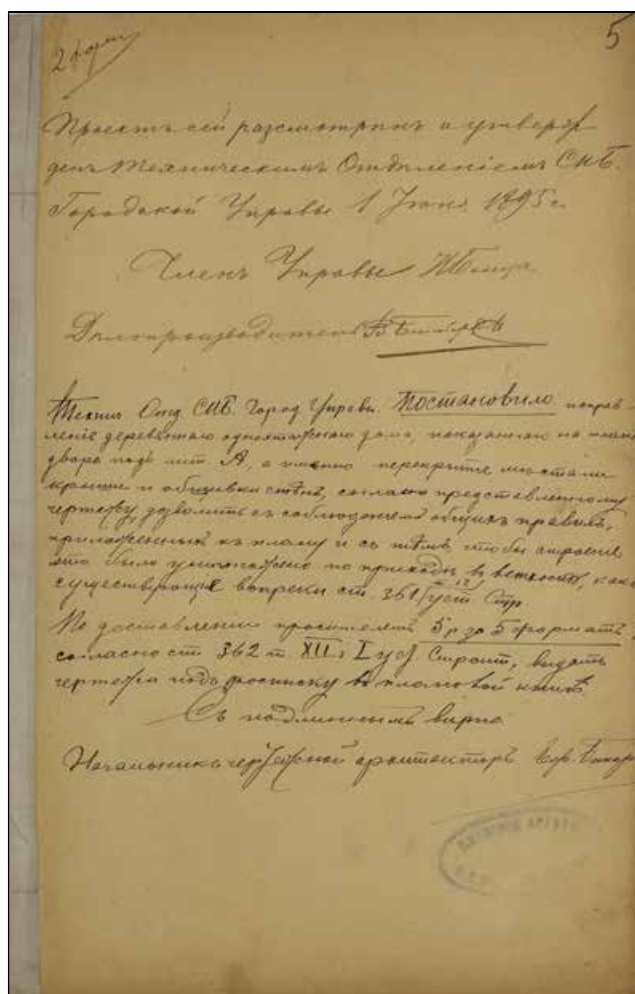 5
2 форм
Проектъ сей разсмотрѣнъ и утверж-
денъ Техническимъ Отдѣленіемъ СПБ.
Городской Управы 1 Іюня 1895 г.
Членъ Управы
Дѣлопроизводитель
Технич Отд СПБ. Город Управы Постановило исправ-
леніе деревяннаго одноэтажнаго дома, показаннаго на планѣ
двора подъ лит А, а именно перекрытіе мѣстами
крыши и обшивки стѣнъ, согласно представленному
чертежу, дозволить съ соблюденіемъ общихъ правилъ,
приложенныхъ къ плану и съ тѣмъ, чтобы строеніе
это было уничтожено по приходѣ въ ветхость, какъ
существующее вопреки ст. 361 уст. Стр
По доставленіи просителемъ 5 р за 5 формат.
согласно ст 362 т XII ч I уст Строит, выдать
чертежи подъ росписку въ плановой книгѣ
Съ подлиннымъ вѣрно
Начальникъ чертежной архитекторъ